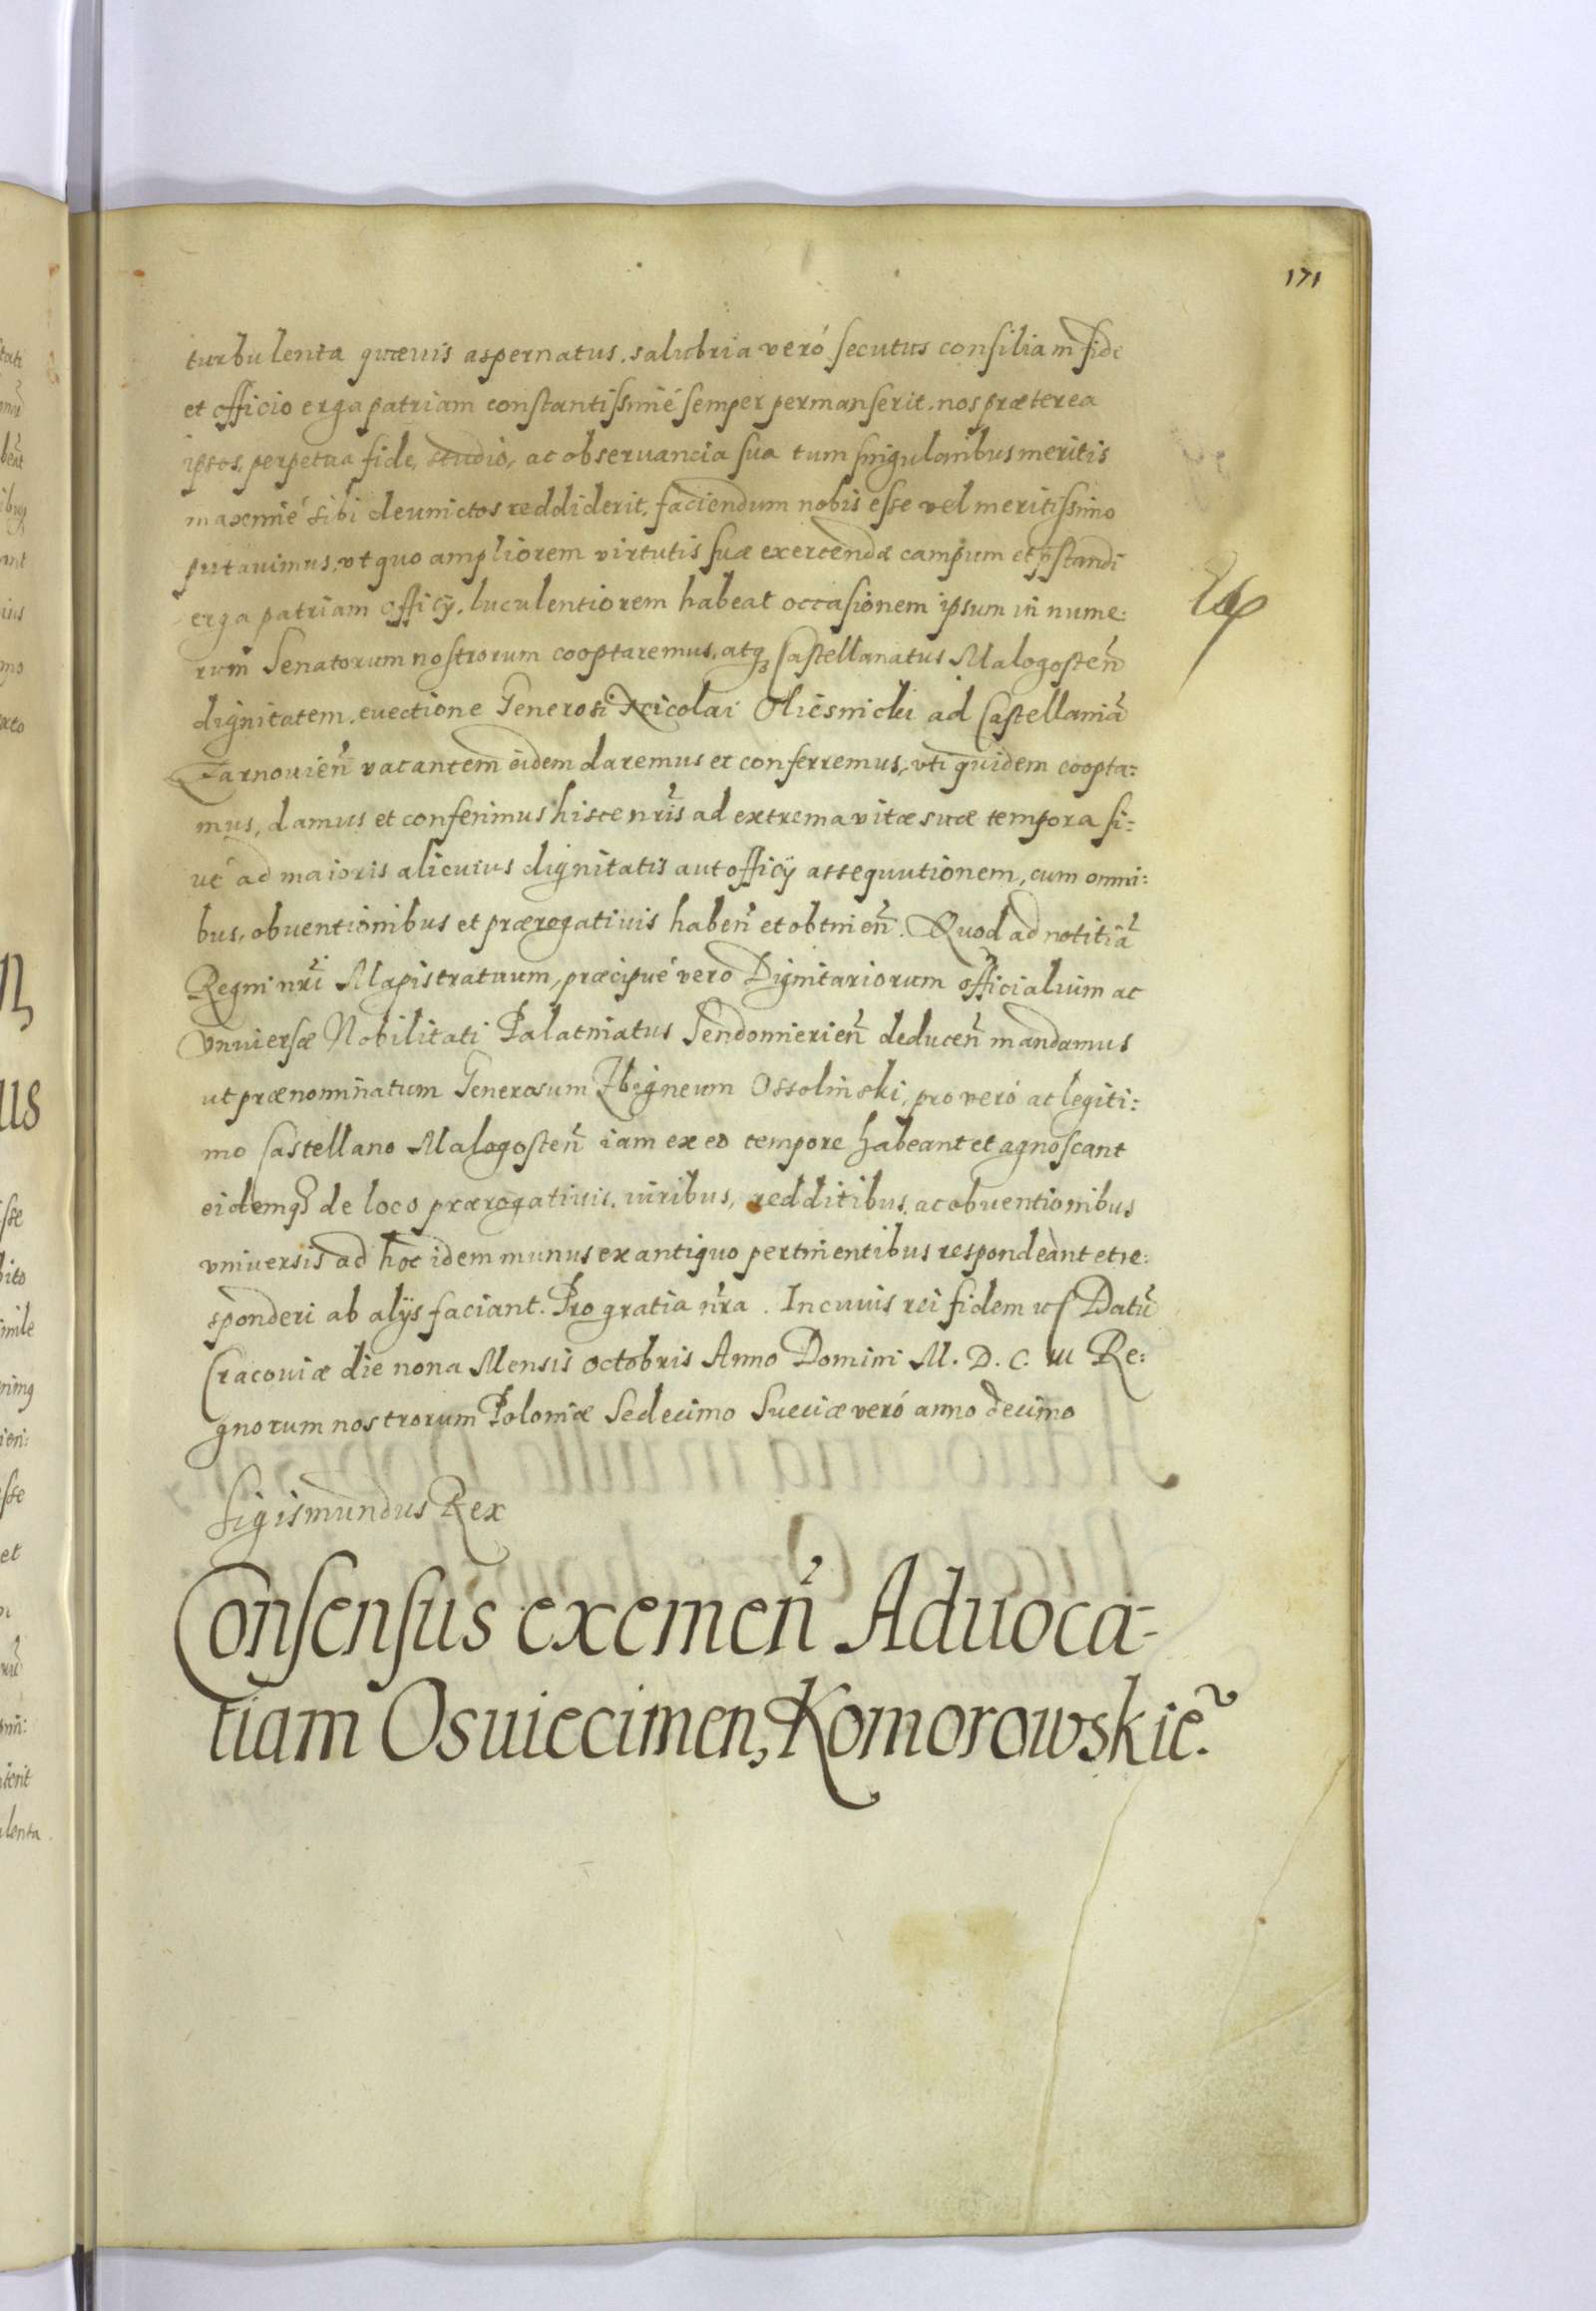 171
turbulenta quævis aspernatus, salubria veró secutus consilia in fide
et officio erga patriam constantissimé semper permanserit, nos præterea
ipsos, perpetua fide, studio, ac observancia sua tum singularibus meritis
maximé sibi devinctos reddiderit, faciendum nobis esse vel meritissimo
putavimus, vt quo ampliorem virtutis suæ exercendæ campum et pstandi
erga patriam officij, luculentiorem habeat occasionem ipsum in nume:
rum Senatorum nostrorum cooptaremus, atq3 Castellanatus Malogosteñ
dignitatem, euectione Generosi Nicolai Oliesnicki ad Castellaniã
Zarnovieñ vacantem eidem daremus et conferremus, vti quidem coopta:
mus, damus et conferimus hisce nris ad extrema vitæ suæ tempora si:
ué ad maioris alicuius dignitatis aut officij assequutionem, cum omni:
bus, obventionibus et prærogativis habeñ et obtineñ. Quod ad notitiã
Regni nri Magistratuum, præcipué vero Dignitariorum officialium ac
Vniversæ Nobilitati Palatinatus Sendomirieñ deduceñ mandamus
ut prænominatum Generosum Zbigneum Ossolinski, pro veró ac legiti:
mo Castellano Malogosteñ iam ex eo tempore habeant et agnoscant
eidemq3 de loco prærogativis, iuribus, redditibus, ac obventionibus
vniversis ad hoc idem munus ex antiquo pertinentibus respondeant et re:
sponderi ab alijs faciant. Pro gratia nra. In cuius rei fidem etc Datũ
Cracoviæ die nona Mensis octobris Anno Domini M. D. C. III Re:
gnorum nostrorum Poloniæ Sedecimo Sueciæ veró anno decimo
Sigismundus Rex
Consensus exemeñ Aduoca-
tiam Osuiecimen, Komorowskie.